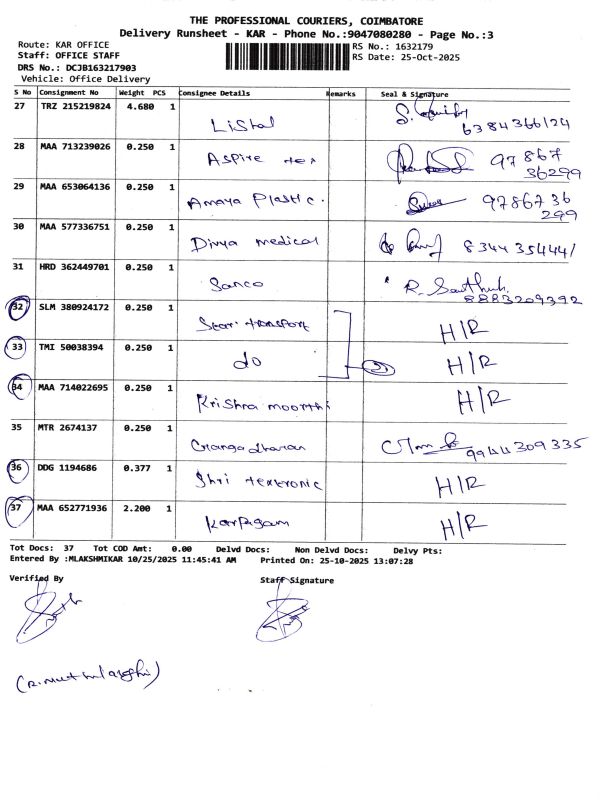 THE PROFESSIONAL COURIERS, COIMBATORE
Delivery Runsheet - KAR - Phone No.:9047080280 - Page No.:3
Route: KAR OFFICE
Staff: OFFICE STAFF
DRS No.: DCJB163217903
Vehicle: Office Delivery
RS No.: 1632179
RS Date: 25-Oct-2025
S No Consignment No Weight PCS Consignee Details Remarks Seal & Signature
27 TRZ 215219824 4.680 1 Listal 6384366124
28 MAA 713239026 0.250 1 Aspire tex 97867 36299
29 MAA 653064136 0.250 1 Amaya Plastic. 9786736 299
30 MAA 577336751 0.250 1 Divya medical 8344354441
31 HRD 362449701 0.250 1 Sanco R. 8883209392
32 SLM 380924172 0.250 1 transport H/R
33 TMI 50038394 0.250 1 do H/R
34 MAA 714022695 0.250 1 Krishna moorthi H/R
35 MTR 2674137 0.250 1 Gangadharan 9944309335
36 DDG 1194686 0.377 1 Shri textronic H/R
37 MAA 652771936 2.200 1 Karpagam H/R
Tot Docs: 37 Tot COD Amt: 0.00 Delvd Docs: Non Delvd Docs: Delvy Pts:
Entered By :MLAKSHMIKAR 10/25/2025 11:45:41 AM Printed On: 25-10-2025 13:07:28
Verified By Staff Signature